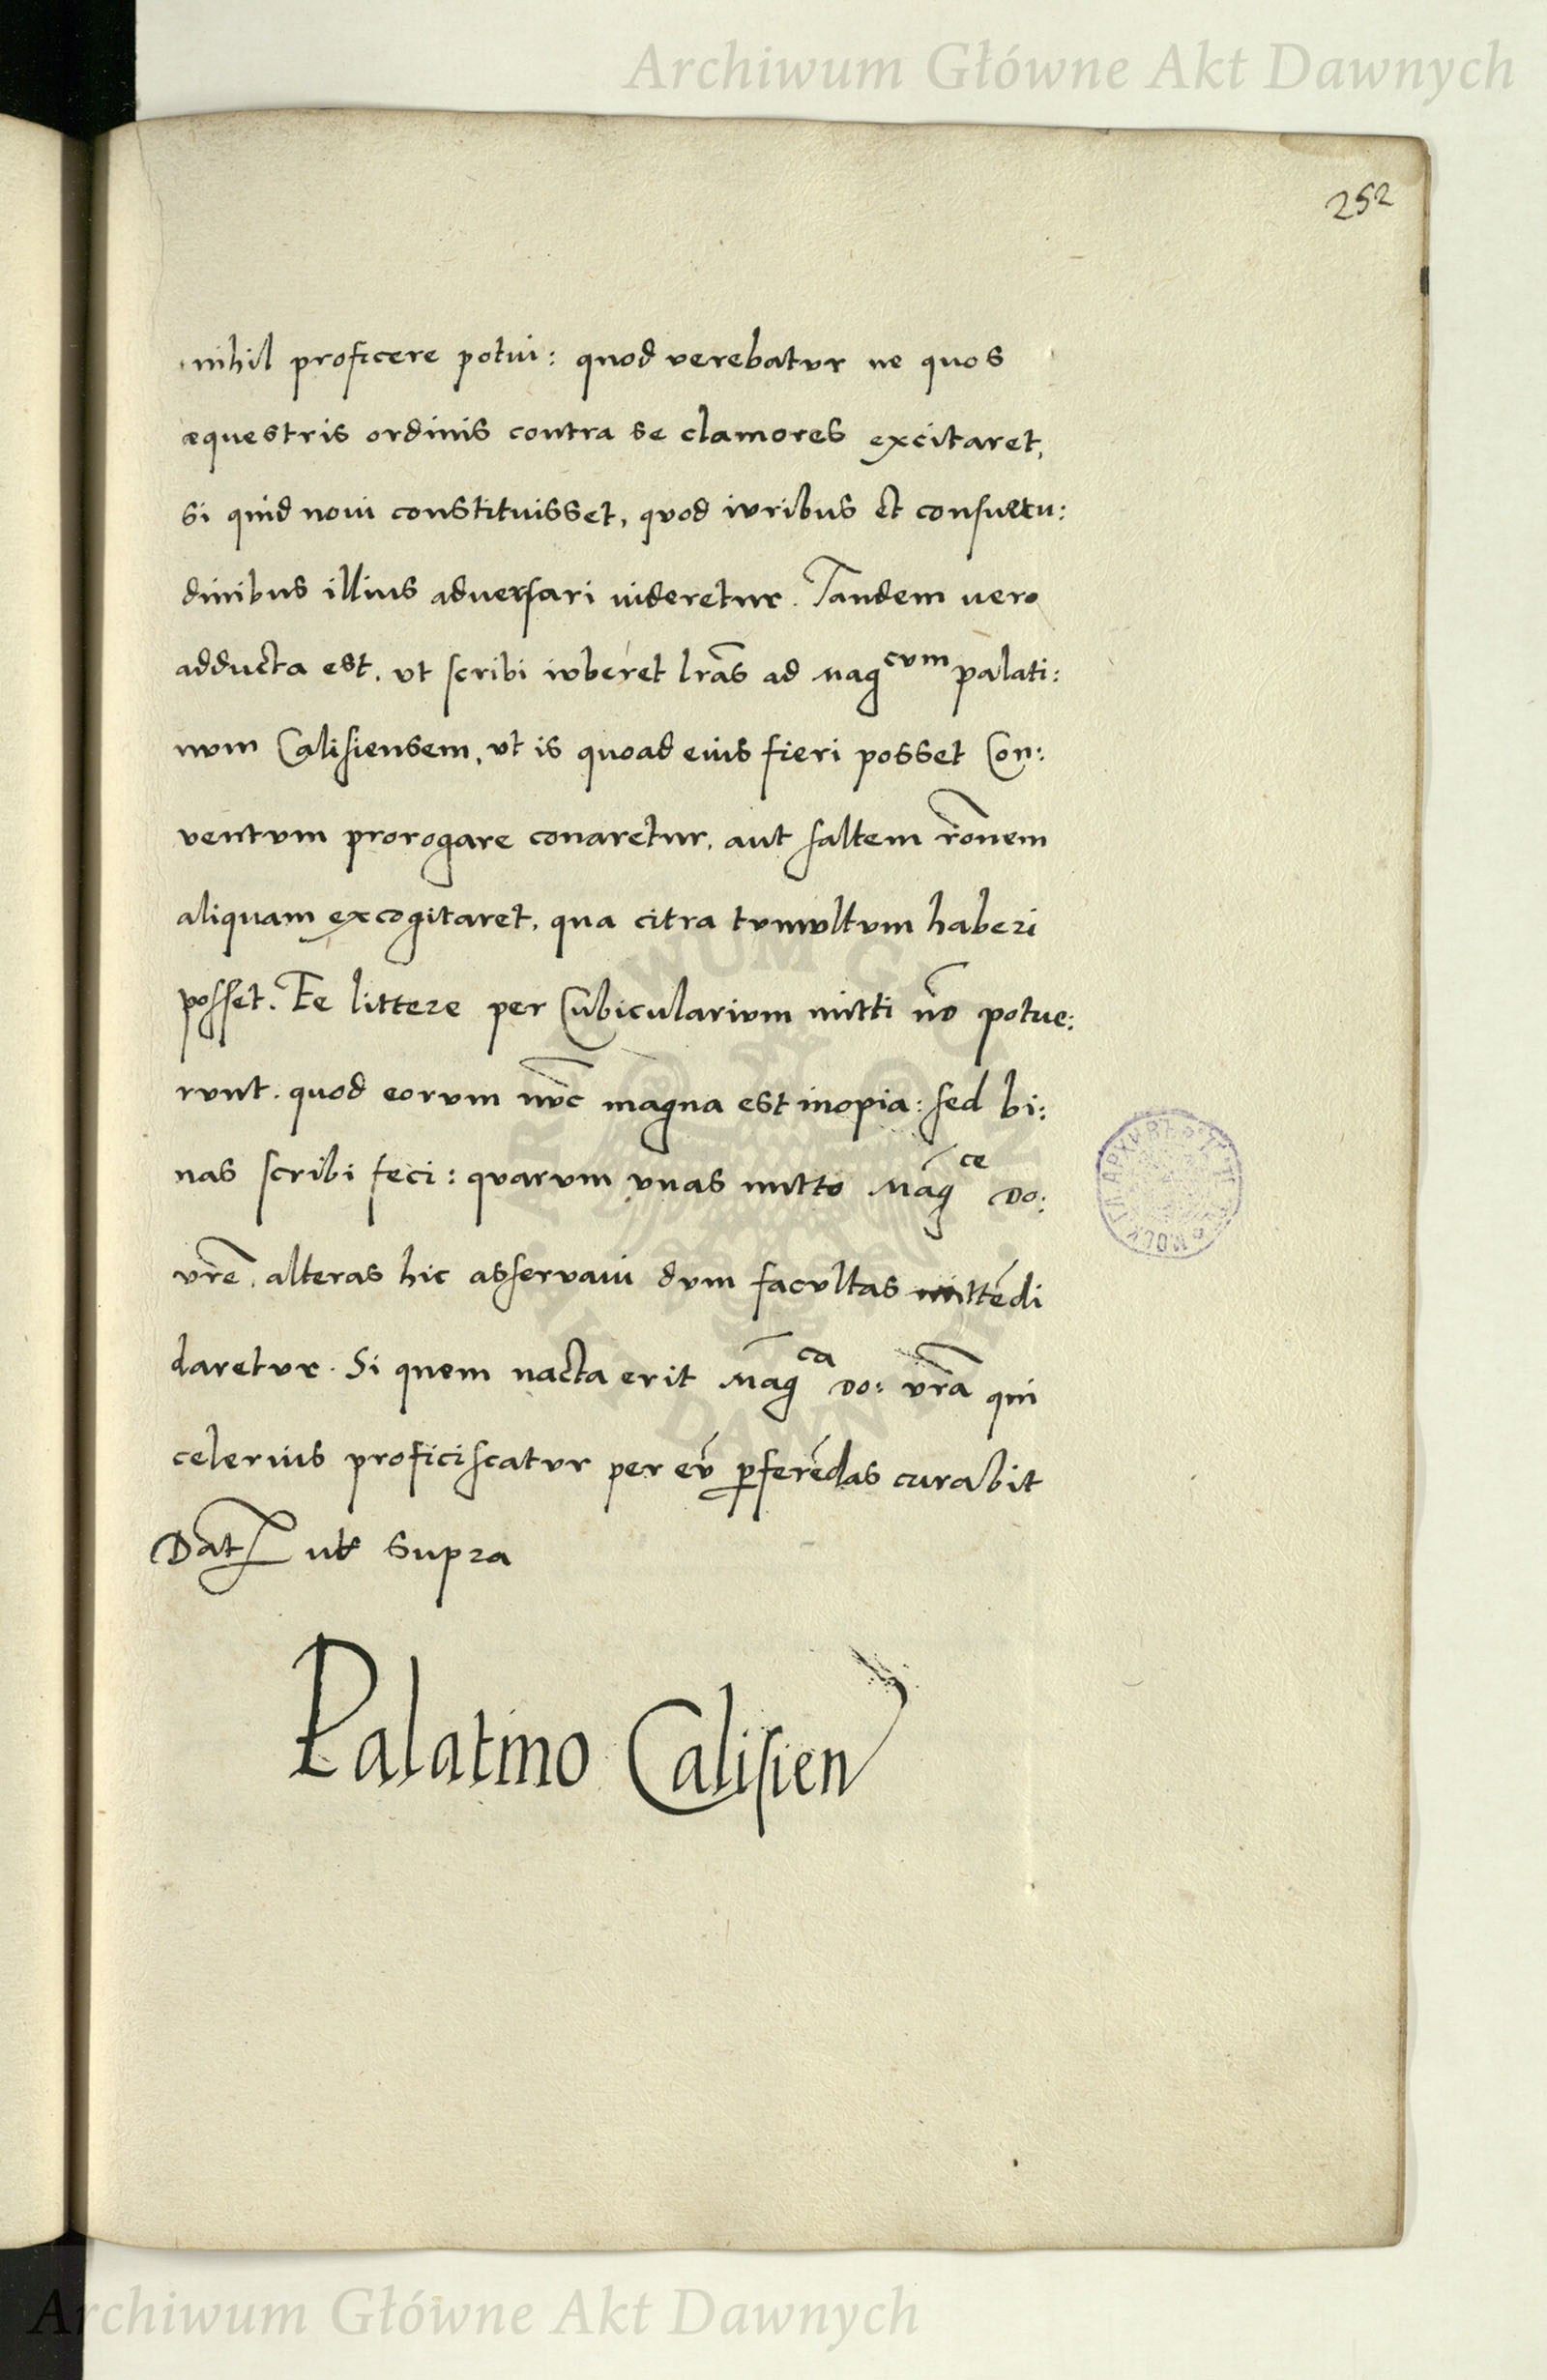 Archiwum Główne Akt Dawnych
252
nihil proficere potui: quod verebatur ne quos
equestris ordinis contra se clamores excitaret,
si quid noui constituisset, quod iuribus et consuetu:
dinibus illius aduersari uideretur. Tandem uero
adducta est, ut scribi iuberet lrãs ad Magcum palati:
num Calisiensem, ut is quoad eius fieri posset Con:
uentum prorogare conaretur, aut saltem rõnem
aliquam excogitaret, qua citra tumultum haberi
posset. Ee littere per Cubicularium mitti nõ potue:
runt, quod eorum nũc magna est inopia: sed bi:
nas scribi feci: quarum unas mitto Mãgce Do:
vrẽ, alteras hic asservaui dum facultas mittẽdi
daretur. Si quem nacta erit Mãgca Do: vrã qui
celerius proficiscatur per eũ pferẽdas curabit
Dat ut supra
Palatino Calisien
Archiwum Główne Akt Dawnych